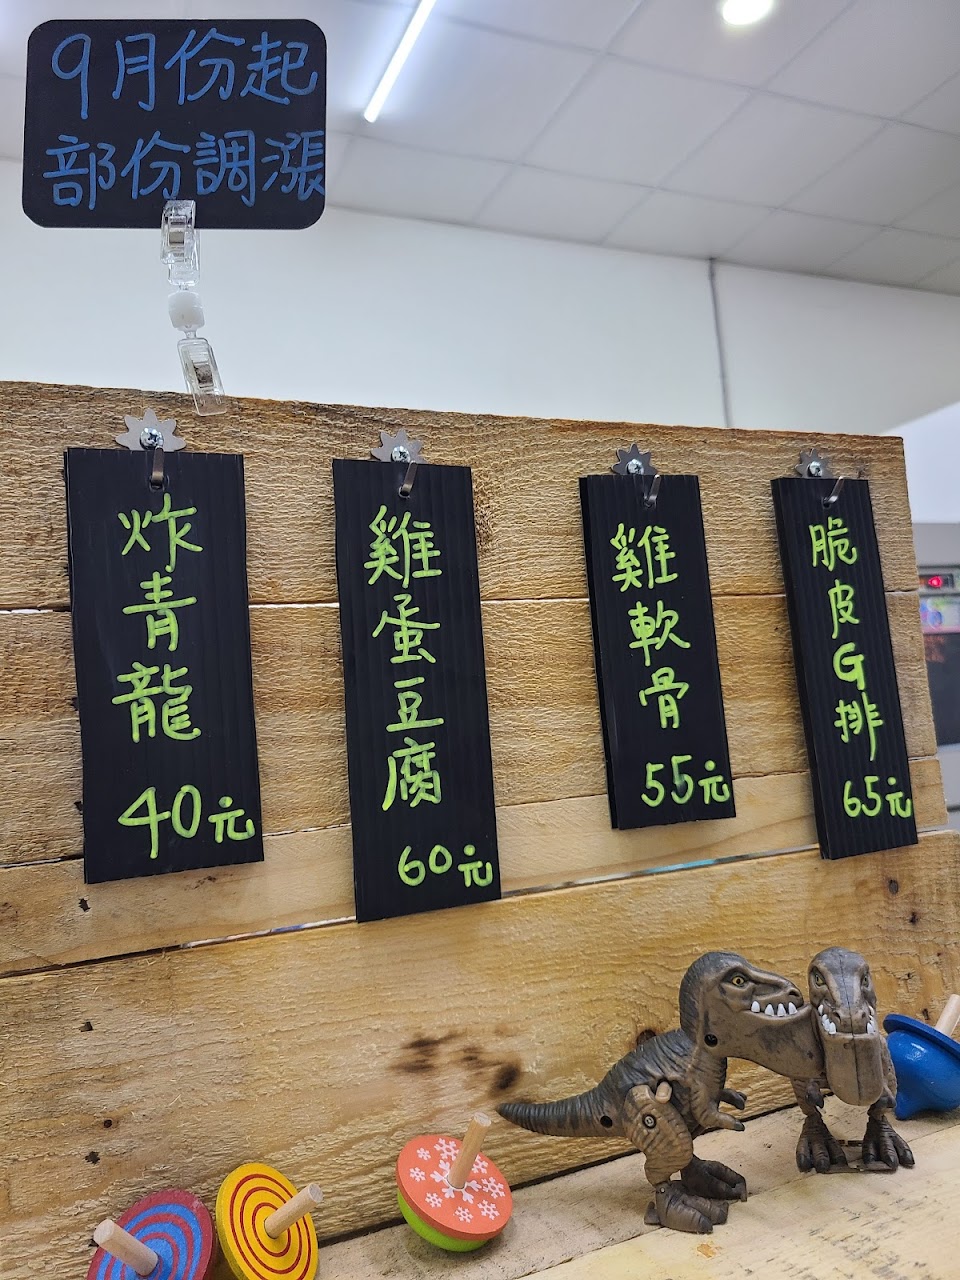 9月份起
部份調漲
炸青龍
40元
雞蛋豆腐
60元
雞軟骨
55元
脆皮G排
65元